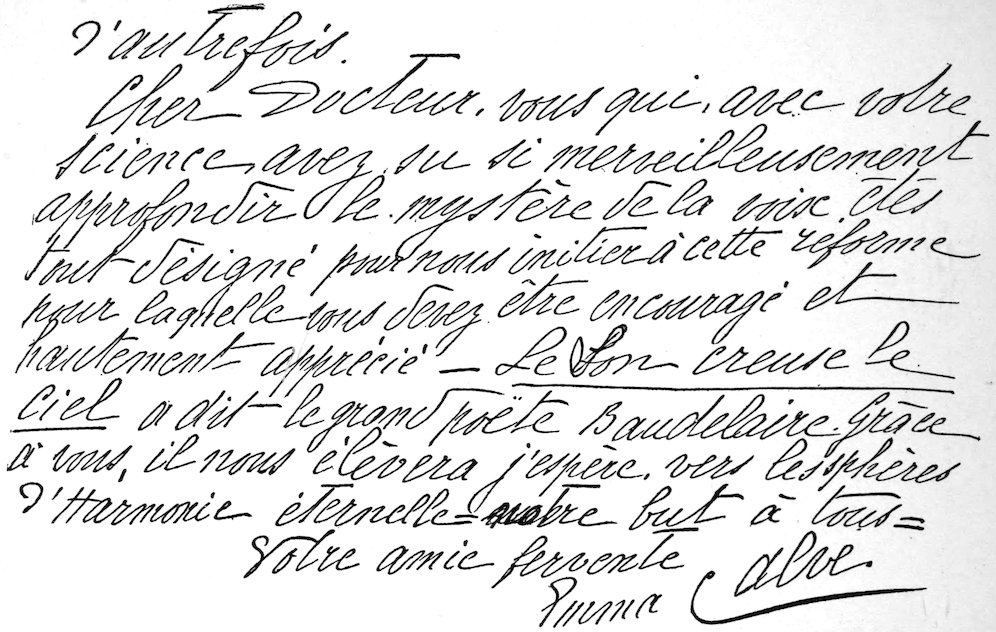 d'autrefois.
Cher Docteur, vous qui, avec votre
science, avez su si merveilleusement
approfondir le mystère de la voix, êtes
tout désigné pour nous initier à cette réforme
pour laquelle vous devez être encouragé et
hautement apprécié – Le Son creuse le
Ciel a dit le grand poëte Baudelaire. Grâce
à vous, il nous élèvera j'espère, vers les sphères
d'Harmonie éternelle = notre but à tous =
Votre amie fervente
Emma Calvé.